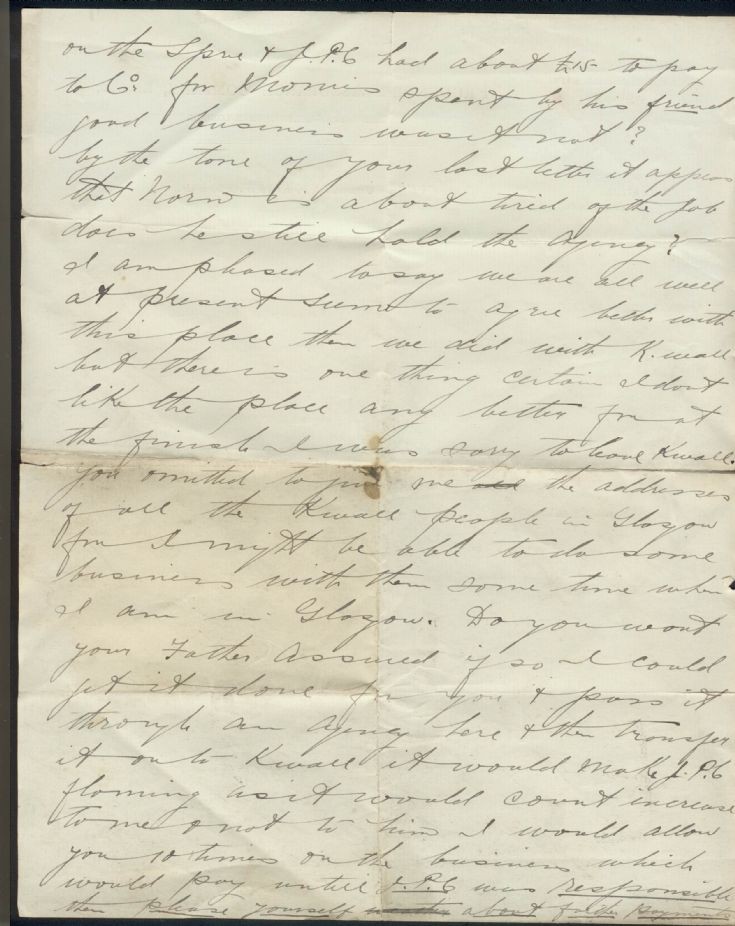 on the Spree & J.P.C had about £15 to pay
to Co. for Monies spent by his friend
good business was it not?
by the tone of your last letter it appears
that Norn is about tired of the Job
does he still hold the Agency?
I am pleased to say we are all well
at present seems to agree better with
this place then we did with K.wall
but there is one thing certain I dont
like the place any better for at
the finish I was sorry to leave Kwall.
You omitted to give me all the addresses
of all the Kwall people in Glasgow
for I might be able to do some
business with them some time when
I am in Glasgow. Do you want
your Father Assured if so I could
get it done for you & pass it
through an Agency here & then transfer
it on to Kwall it would make J.P.C
flaming as it would count increase
to me & not to him I would allow
you 10 times on the business which
would pay untill J.P.C was responsible
then please yourself about further payments